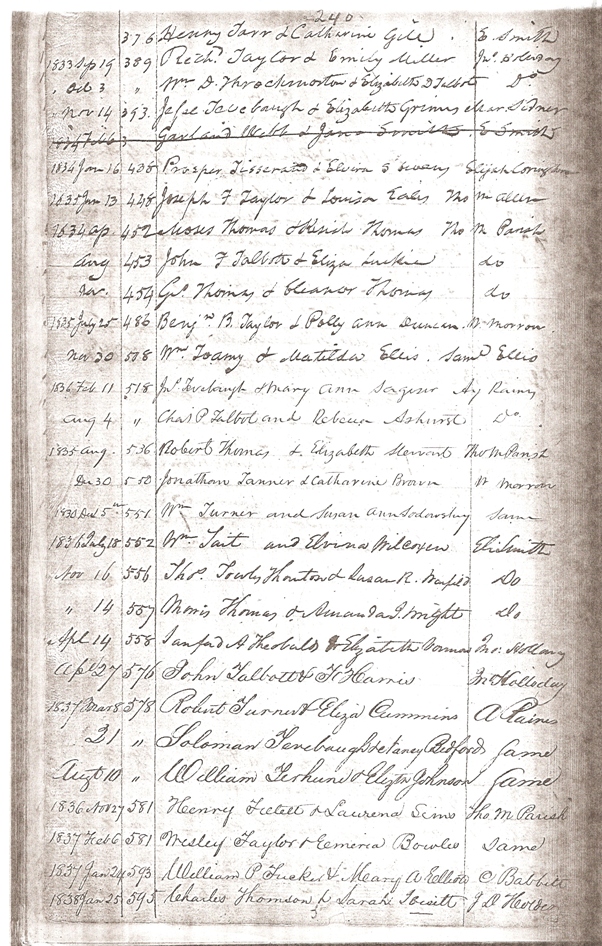 240
376 Henry Tarr & Catharine Gill. E. Smith
1833 Sep 19 389 Taylor & Emily Miller Jno
" Oct 3 " Wm D. Throckmorton & Elizabeth D Talbott Do
" Nov 14 393. Jesse Tevebaugh & Elizabeth Grimes
Garland Webb & Jane Smith E Smith
1834 Jan 16 438 Prosper Tisserand & Elvira Elijah
1835 Jan 13 448 Joseph F Taylor & Louisa Eales Tho M Allen
1834 ap. 452 Moses Thomas & Thomas Tho M Parish
Aug 453 John F Talbott & Eliza Luckie do
Nov. 454 Thomas & Eleanor Thomas do
1835 July 25 486 Benjn B. Taylor & Polly Ann Duncan. W Morrow.
Nov 30 508 Wm Toamy & Matilda Ellis. Saml Ellis
1836 Feb. 11 518 Jno Tevebaugh & Mary Ann A, Rains
Aug 4 " Chas P. Talbot and Rebecca Ashurst Do
1835 Aug. 536 Robert Thomas & Elizabeth Stewart Tho M Parish
Dec 30 550 Jonathan Tanner & Catharine Brown W Morrow
5th 551 Wm Turner and Susan Ann Sodowsky Same
1836 July 18 552 Wm Tait and Elvina Wilcoxen Eli Smith
Nov 16 556 Thos. Towls & Susan R. Do
" 14 557 Morris Thomas & Amanda J. Wright Do
" Apl 14 558 Sanford A Theobald & Elizabeth Jno:
Apl 27 576 John Talbott & Harris Jno Holloday
1837 Mar 8 578 Robert Turner & Eliza Cummins A Raines
21 " Soloman Tevebaugh & Bedford Same
Augt 10 " William Terhune & Elizth Johnson Same
1836 Nov 27 581 Henry & Laurena Sims Tho M Parish
1837 Feb 6 581 Wesley Taylor & Emeria Bowles Same
1837 Jan 24 593 William P Tucker & Mary A Elliott C Babbitt
1838 Jan 25 595 Charles Thomson & Sarah J D